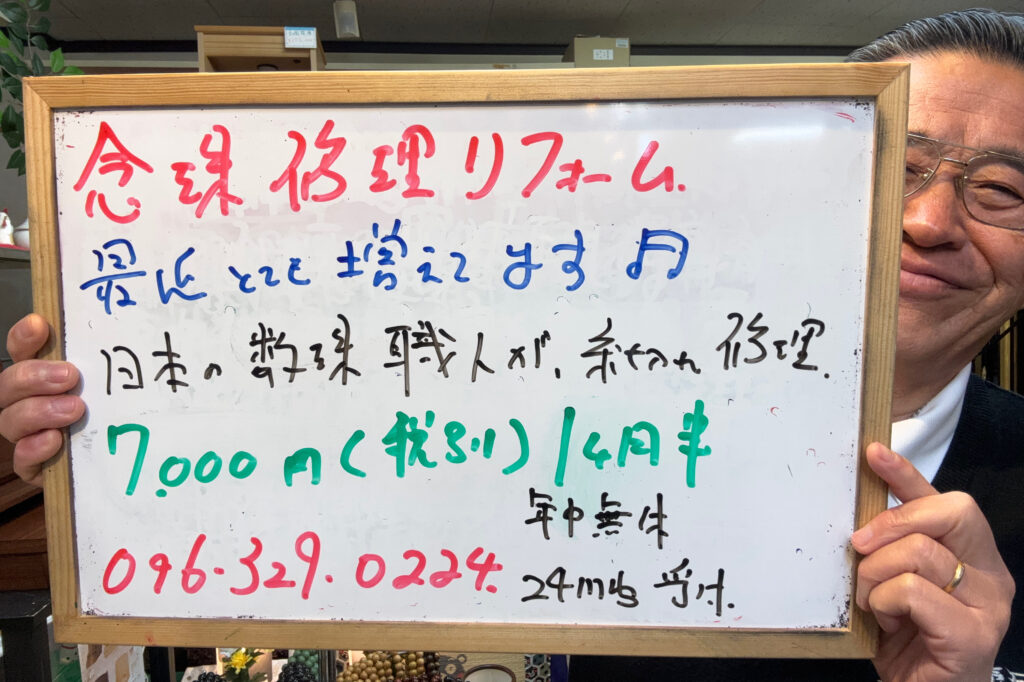 念珠修理リフォーム.
最近とても増えてます♫
日本の数珠職人が、糸切れ修理.
7.000円(税別)/4月半
年中無休
096.329.0224.
24mys 受付.